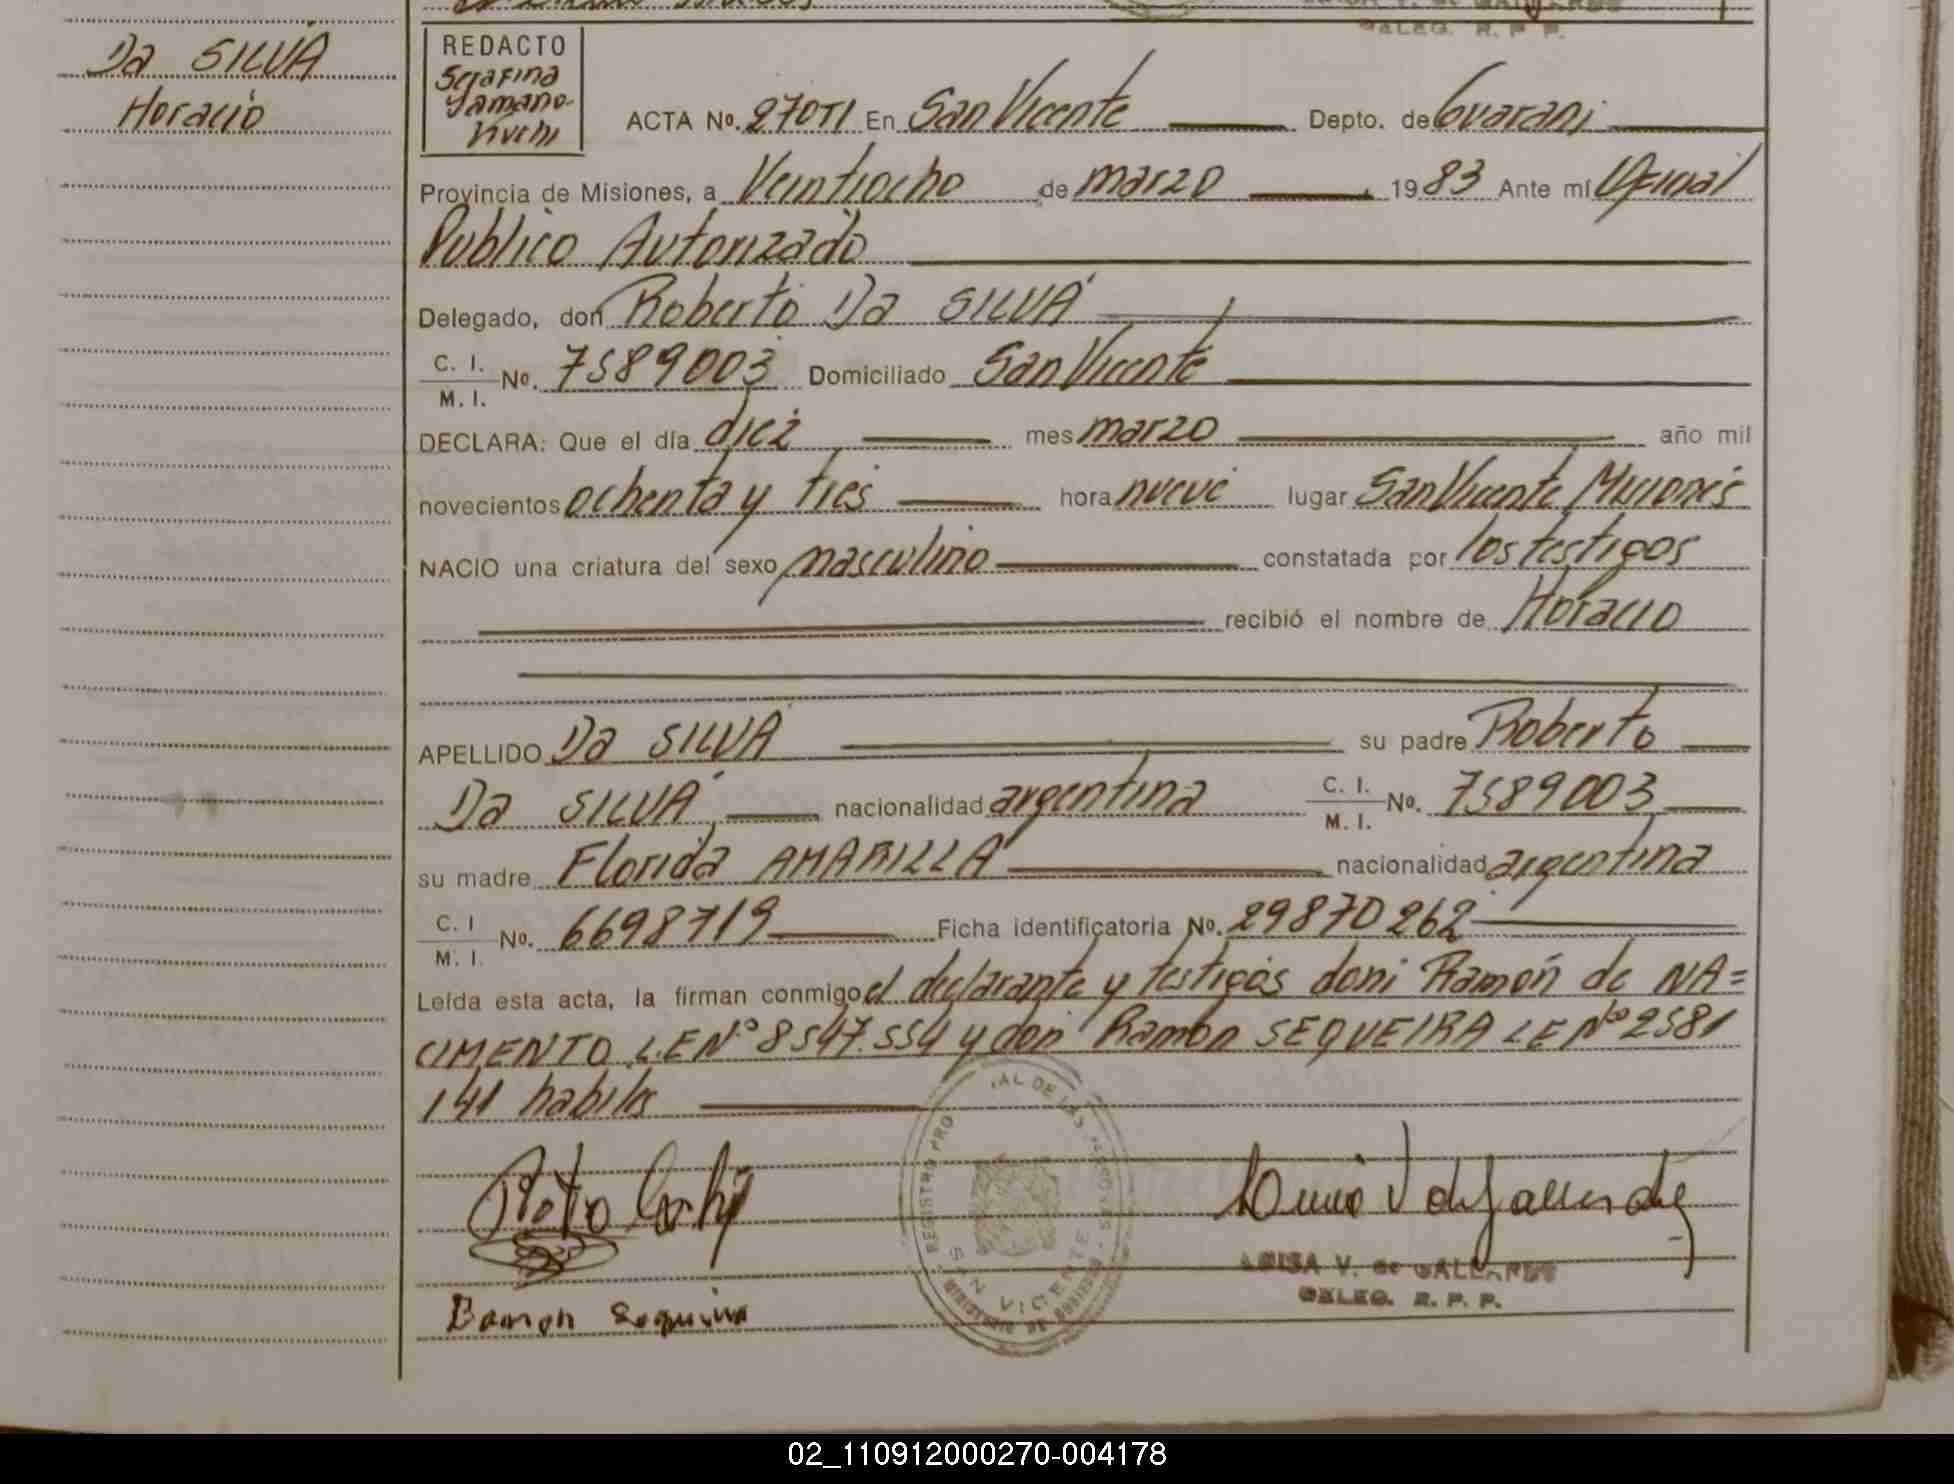 Da SILVA
Horacio
DELEG. R. P. P.
REDACTO
Serafina
ACTA Nº. 270TI En San Vicente Depto. de Guarani
Provincia de Misiones, a Veintiocho de marzo 1983 Ante mí Oficial
Publico Autorizado
Delegado, don Roberto Da SILVA
C. I.
M. I. Nº. 7589003 Domiciliado San Vicente
DECLARA: Que el día diez mes marzo año mil
novecientos ochenta y tres hora nueve lugar San Vicente Misiones
NACIO una criatura del sexo masculino constatada por los testigos
recibió el nombre de Horacio
APELLIDO Da SILVA su padre Roberto
Da SILVA nacionalidad argentina C. I.
M. I. Nº. 7589003
su madre Florida AMARILLA nacionalidad argentina
C. I
M. I. Nº. 6698719 Ficha identificatoria Nº. 29870262
Leída esta acta, la firman conmigo el declarante y testigos don: Ramón de NA=
CIMENTO L.E Nº 8547.554 y don Ramon SEQUEIRA LE Nº 2581
141 habiles
REGISTRO PRO IAL DE LAS PERSONAS
SAN VICENTE
MINISTERIO DE GOBIERNO
LUISA V. de GALLARDO
DELEG. R. P. P.
Ramon Sequeira
02_110912000270-004178